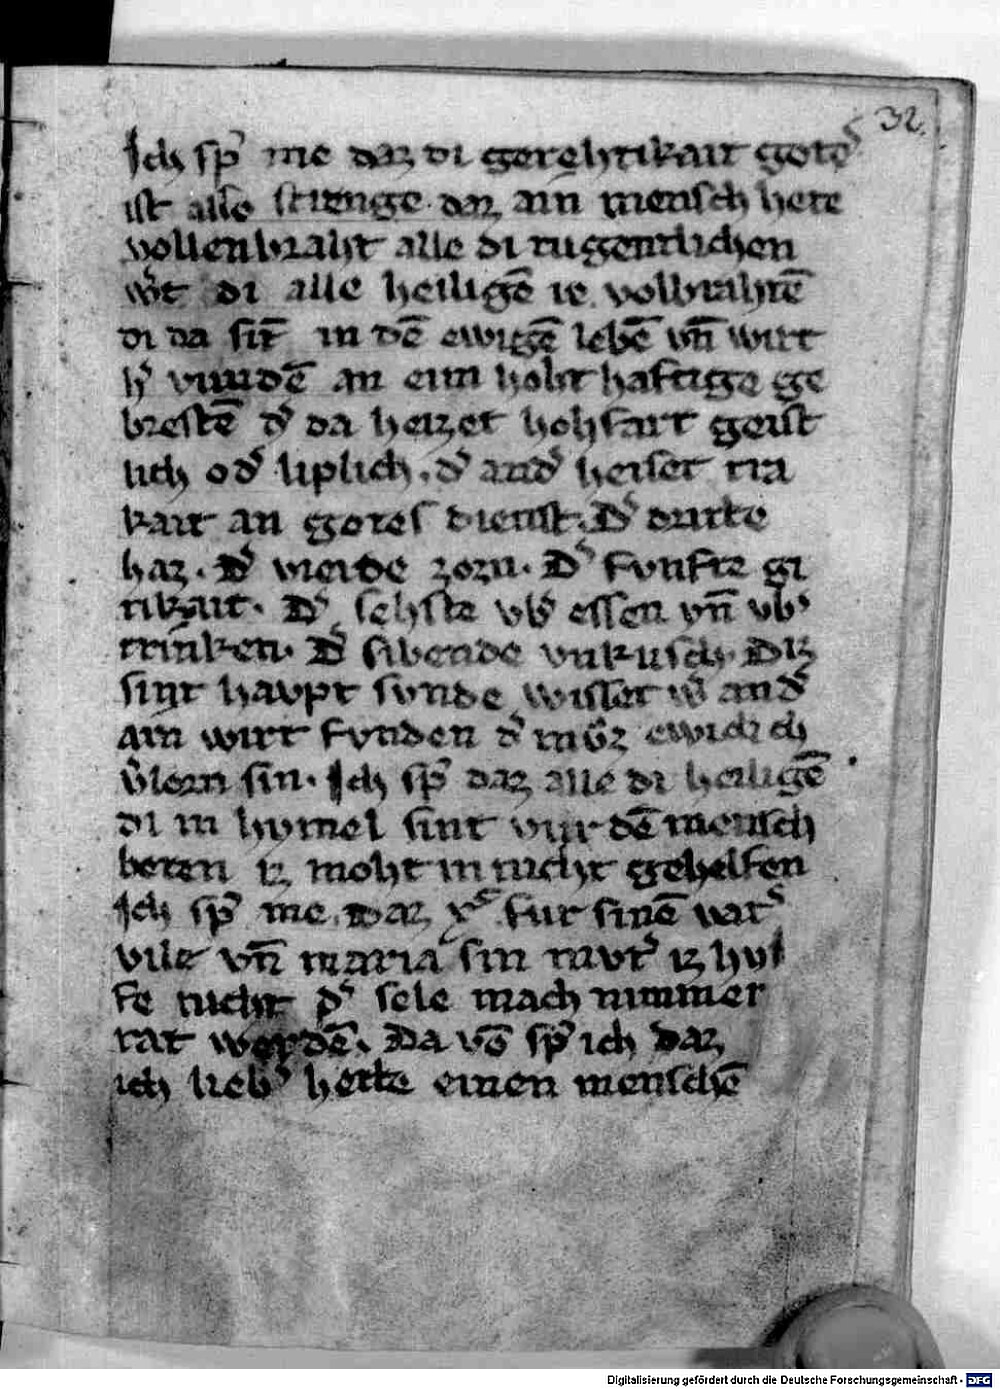 32.
Ich sp̄ me daz di gerehtikait gotes
ist also strenge. daz ain mensch hete
vollenbraht alle di tugentlichen
w̉c di alle heiligē ie volbrahtē
di da sīt in dē ewigē lebē vn̄ wirt
h̉ vundē an eim hobt haftige ge
brestē d̉ da heizet hohfart geist
lich od̉ liplich. d̉ and̉ heiset tra
kait an gotes dienst. D̉ dritte
haz. D̉ vierde zorn. D̉ funfte gi
tikait. D̉ sehste vb̉ essen vn̄ vb̉
trinken. D̉ sibende vnkusch. Diz
sint havpt svnde wisset w̉ and̉
ain wirt fvnden d̉ mvͦz ewiclich
v̉lorn sin. Ich sp̄ daz alle di heiligē
di in hymel sint vur dē mensch
beten iz moht in nicht gehelfen
Ich sp̄ me. daz xp̄s fur sinē vat̉
vile vn̄ maria sin mvt̉ iz hul
fe nicht d̉ sele mach nimmer
rat werdē. Da vō sp̄ ich daz
ich lieb̉ hette einen menschē
Digitalisierung gefördert durch die Deutsche Forschungsgemeinschaft - DFG